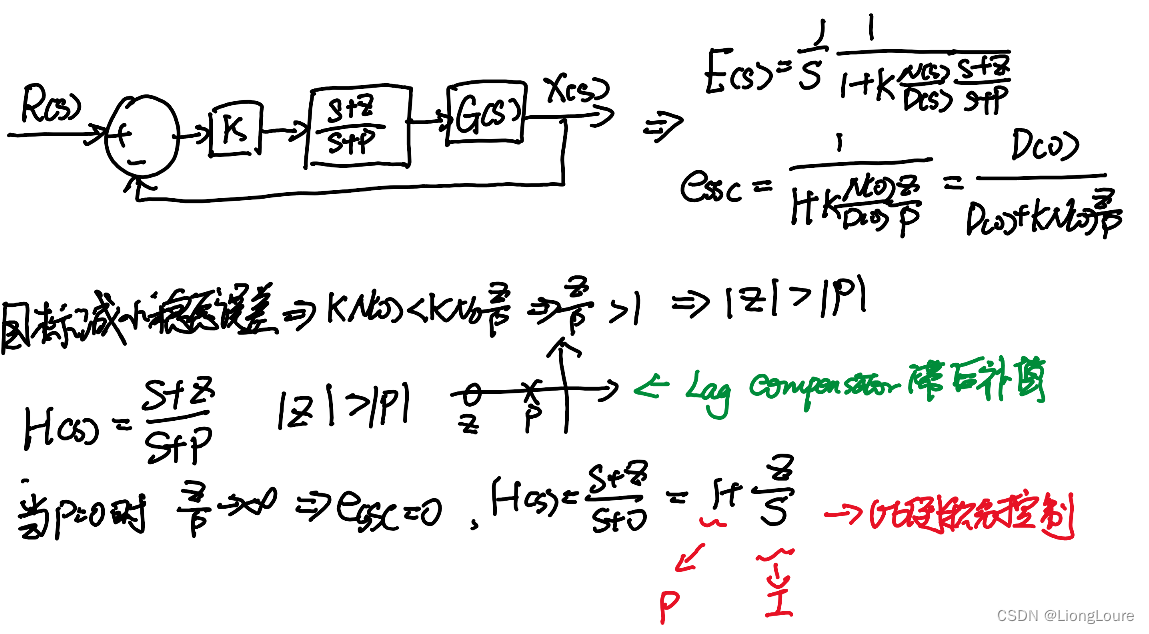 R(s) + - K (s+z)/(s+p) G(s) X(s) ⇒ E(s) = 1/s · 1/(1+K N(s)/D(s) · (s+z)/(s+p))
e_ssc = 1/(1+K N(0)z/(D(0)p)) = D(0)/(D(0)+KN(0) z/p)
目标减小稳态误差 ⇒ KN(0) < KN(0) z/p ⇒ z/p > 1 ⇒ |z| > |p|
H(s) = (s+z)/(s+p) |z| > |p| z p ← Lag compensator 滞后补偿
当 p=0 时 z/p → ∞ ⇒ e_ssc = 0 , H(s) = (s+z)/(s+0) = 1+ z/s → 比例积分控制
P I
CSDN @LiongLoure